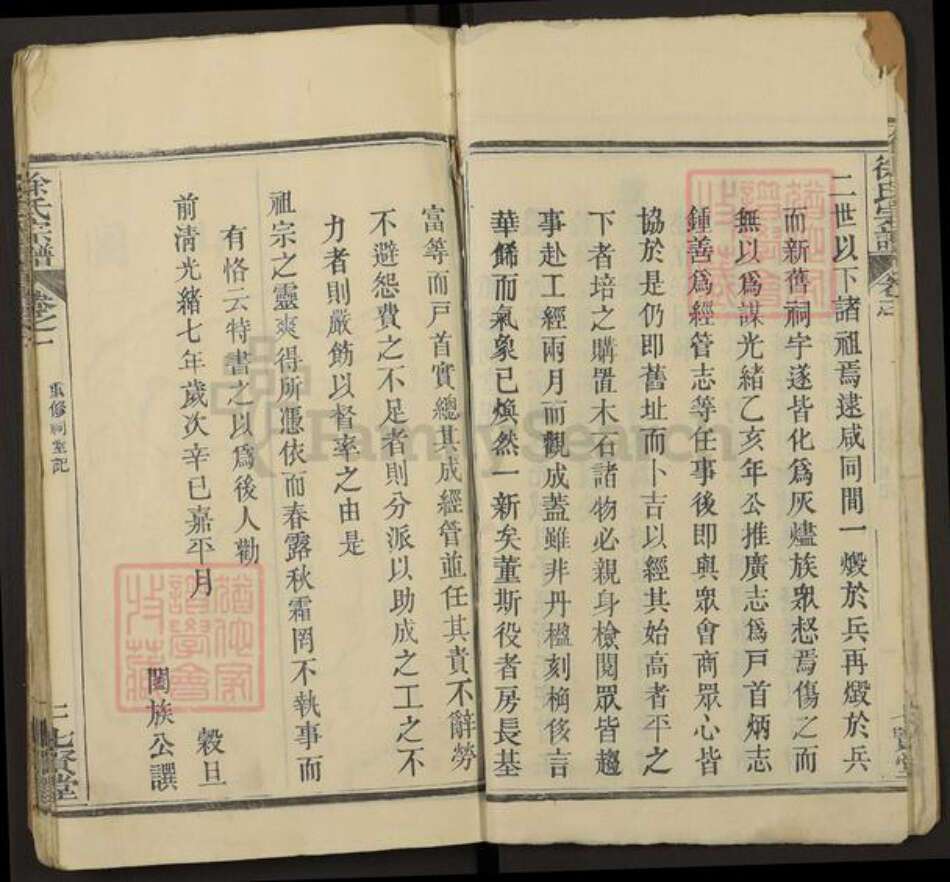 二世以下諸祖焉逮咸同間一燬於兵再燬於兵
而新舊祠宇遂皆化爲灰燼族衆惄焉傷之而
無以爲謀光緒乙亥年公推廣志爲戶首炳志
鍾善爲經管志等任事後即與眾會商眾心皆
協於是仍即舊址而卜吉以經其始高者平之
下者培之購置木石諸物必親身檢閱眾皆趨
事赴工經兩月而觀成蓋雖非丹楹刻桷侈言
華餙而氣象已煥然一新矣董斯役者房長基
富等而戶首實總其成經管並任其責不辭勞
不避怨費之不足者則分派以助成之工之不
力者則嚴飭以督率之由是
祖宗之靈爽得所憑依而春露秋霜罔不執事而
有恪云特書之以爲後人勸
前清光緒七年歲次辛巳嘉平月
穀旦
闔族公譔
徐氏宗譜
卷之一
重修祠堂記
二
七賢堂
FamilySearch